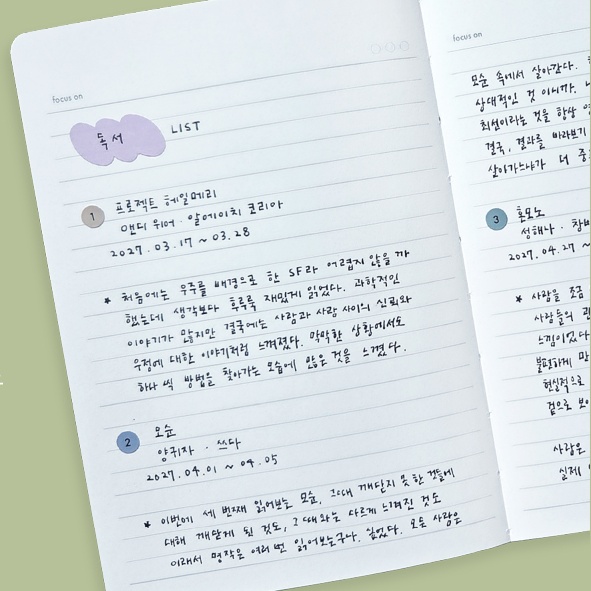 focus on
독서 LIST
1
프로젝트 헤일메리
앤디 위어 · 알에이치 코리아
2027. 03. 17 ~ 03. 28
* 처음에는 우주를 배경으로 한 SF라 어렵지 않을까
했는데 생각보다 후루룩 재밌게 읽었다. 과학적인
이야기가 많지만 결국에는 사람과 사람 사이의 신뢰와
우정에 대한 이야기처럼 느껴졌다. 막막한 상황에서도
하나씩 방법을 찾아가는 모습에 많은 것을 느꼈다.
2
모순
양귀자 · 쓰다
2027. 04. 01 ~ 04. 05
* 이번에 세 번째 읽어보는 모순, 그때 깨닫지 못한 것들에
대해 깨닫게 된 것도, 그때와는 다르게 느껴진 것도
이래서 명작은 여러 번 읽어보는구나, 싶었다. 모든 사람은
focus on
모순 속에서 살아간다.
상대적인 것 이니까.
최선이라는 것을 항상
결국, 결과를 바라보기
살아가느냐가 더
3
혼모노
성해나 ·
2027. 04. 27 ~
* 사람을 조금
사람들의
느낌이었다
불편하게
현실적으로
겉으로
사랑은
실제